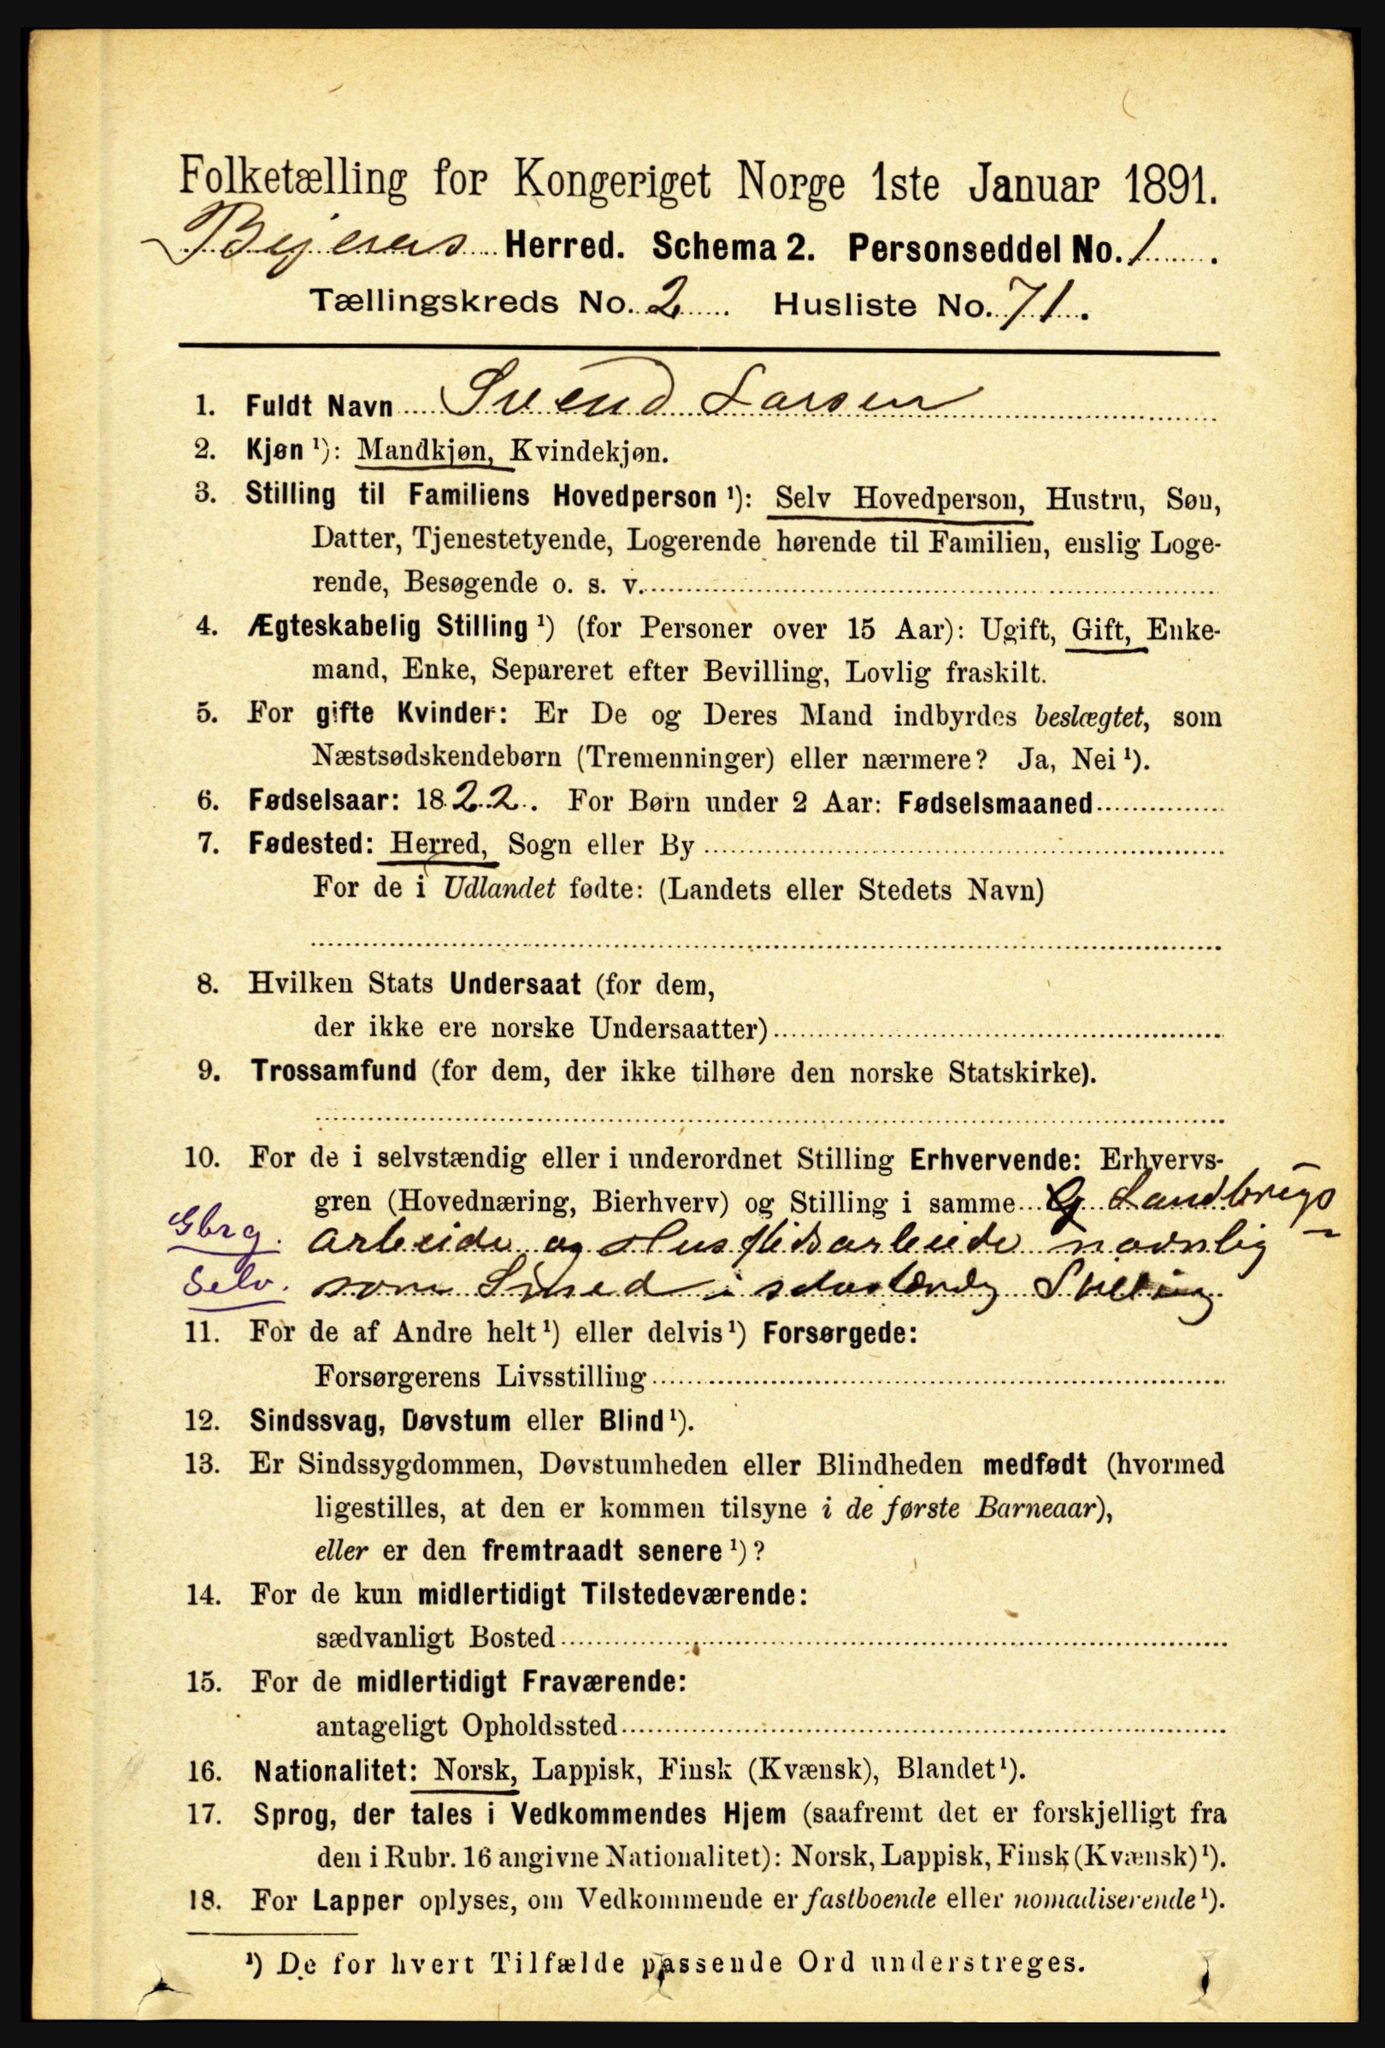 Folketælling for Kongeriget Norge 1ste Januar 1891.
Bejeren Herred. Schema 2. Personseddel No. 1.
Tællingskreds No. 2. Husliste No. 71.
1. Fuldt Navn Svend Larsen
2. Kjøn ¹): Mandkjøn, Kvindekjøn.
3. Stilling til Familiens Hovedperson ¹): Selv Hovedperson, Hustru, Søn,
Datter, Tjenestetyende, Logerende hørende til Familien, enslig Loge-
rende, Besøgende o. s. v.
4. Ægteskabelig Stilling ¹) (for Personer over 15 Aar): Ugift, Gift, Enke-
mand, Enke, Separeret efter Bevilling, Lovlig fraskilt.
5. For gifte Kvinder: Er De og Deres Mand indbyrdes beslægtet, som
Næstsødskendebørn (Tremenninger) eller nærmere? Ja, Nei ¹).
6. Fødselsaar: 1822. For Børn under 2 Aar: Fødselsmaaned
7. Fødested: Herred, Sogn eller By
For de i Udlandet fødte: (Landets eller Stedets Navn)
8. Hvilken Stats Undersaat (for dem,
der ikke ere norske Undersaatter)
9. Trossamfund (for dem, der ikke tilhøre den norske Statskirke).
10. For de i selvstændig eller i underordnet Stilling Erhvervende: Erhvervs-
gren (Hovednæring, Bierhverv) og Stilling i samme G. Landbrugs
Gbrg. arbeide og Husflidsarbeide navnlig
Selv. som Smed i selvstændig Stilling
11. For de af Andre helt ¹) eller delvis ¹) Forsørgede:
Forsørgerens Livsstilling
12. Sindssvag, Døvstum eller Blind ¹).
13. Er Sindssygdommen, Døvstumheden eller Blindheden medfødt (hvormed
ligestilles, at den er kommen tilsyne i de første Barneaar),
eller er den fremtraadt senere ¹)?
14. For de kun midlertidigt Tilstedeværende:
sædvanligt Bosted
15. For de midlertidigt Fraværende:
antageligt Opholdssted
16. Nationalitet: Norsk, Lappisk, Finsk (Kvænsk), Blandet ¹).
17. Sprog, der tales i Vedkommendes Hjem (saafremt det er forskjelligt fra
den i Rubr. 16 angivne Nationalitet): Norsk, Lappisk, Finsk (Kvænsk) ¹).
18. For Lapper oplyses, om Vedkommende er fastboende eller nomadiserende ¹).
¹) De for hvert Tilfælde passende Ord understreges.